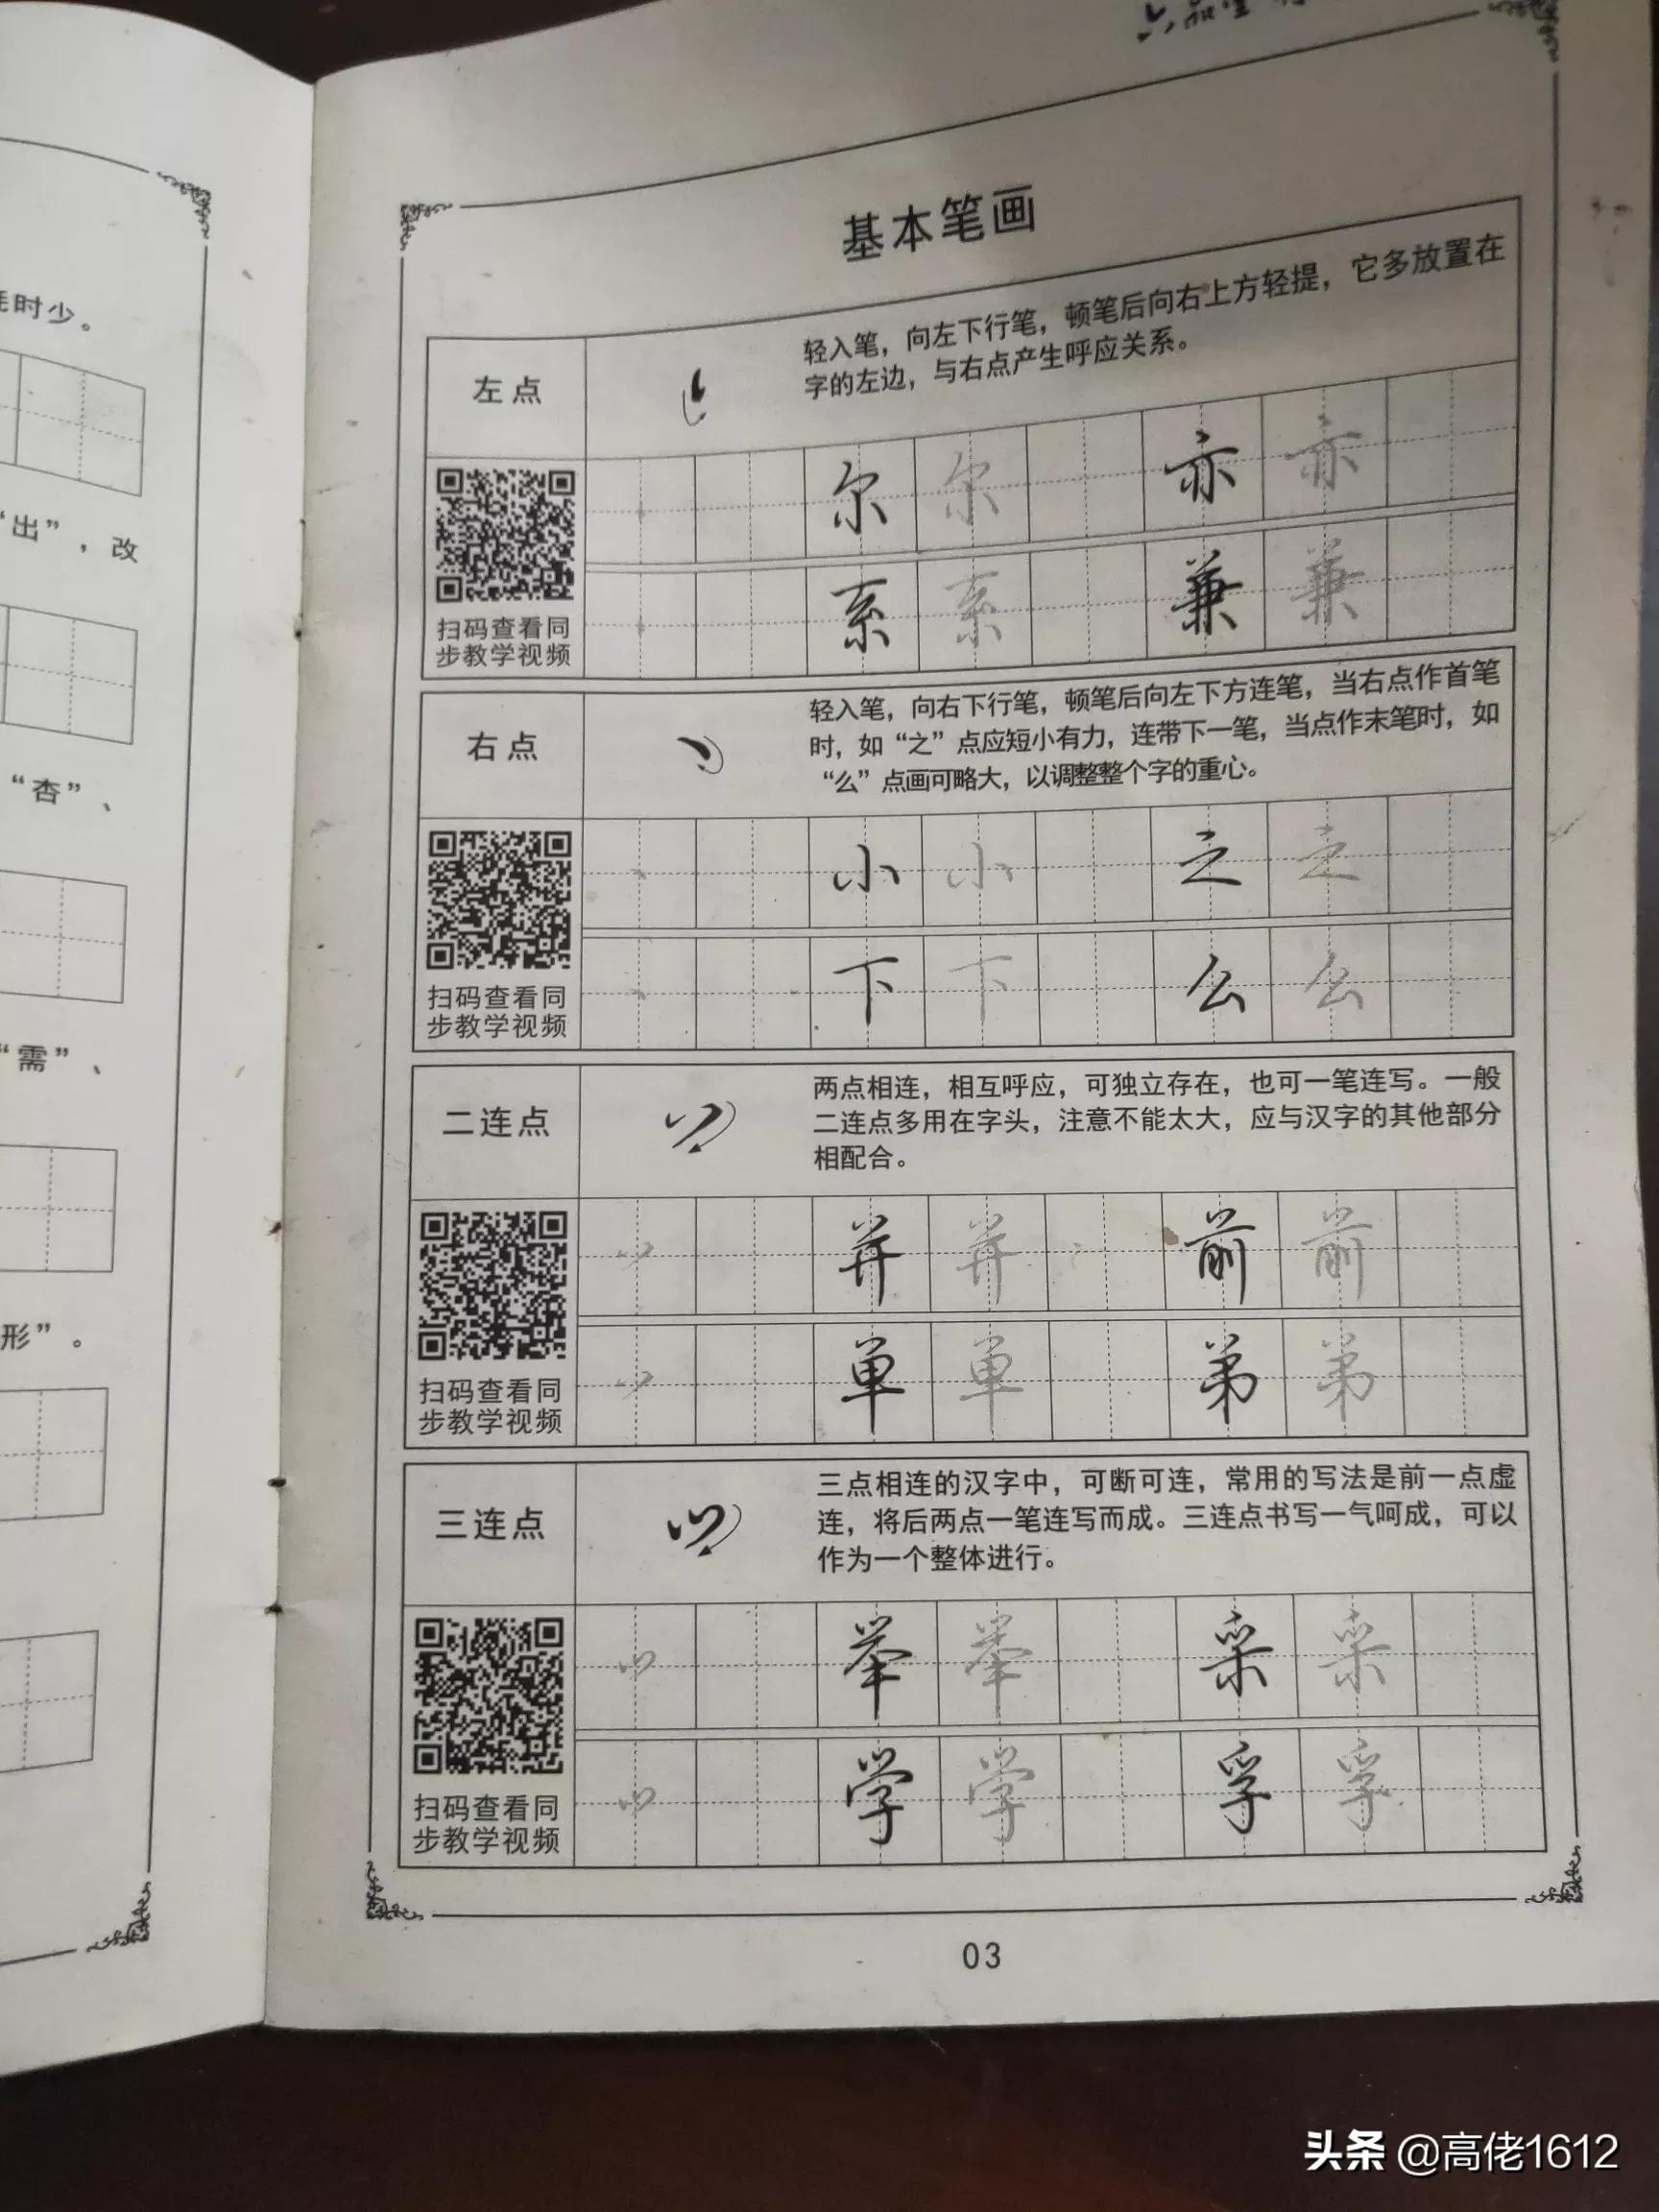 时少。
“出”，改
“杏”、
“需”、
形”。
基本笔画
左点
轻入笔，向左下行笔，顿笔后向右上方轻提，它多放置在
字的左边，与右点产生呼应关系。
扫码查看同
步教学视频
尔 尔 亦 亦
系 系 兼 兼
右点
轻入笔，向右下行笔，顿笔后向左下方连笔，当右点作首笔
时，如“之”点应短小有力，连带下一笔，当点作末笔时，如
“么”点画可略大，以调整整个字的重心。
扫码查看同
步教学视频
小 小 之 之
下 下 么 么
二连点
两点相连，相互呼应，可独立存在，也可一笔连写。一般
二连点多用在字头，注意不能太大，应与汉字的其他部分
相配合。
扫码查看同
步教学视频
并 并 前 前
单 单 弟 弟
三连点
三点相连的汉字中，可断可连，常用的写法是前一点虚
连，将后两点一笔连写而成。三连点书写一气呵成，可以
作为一个整体进行。
扫码查看同
步教学视频
举 举 采 采
学 学 孚 孚
03
头条 @高佬1612